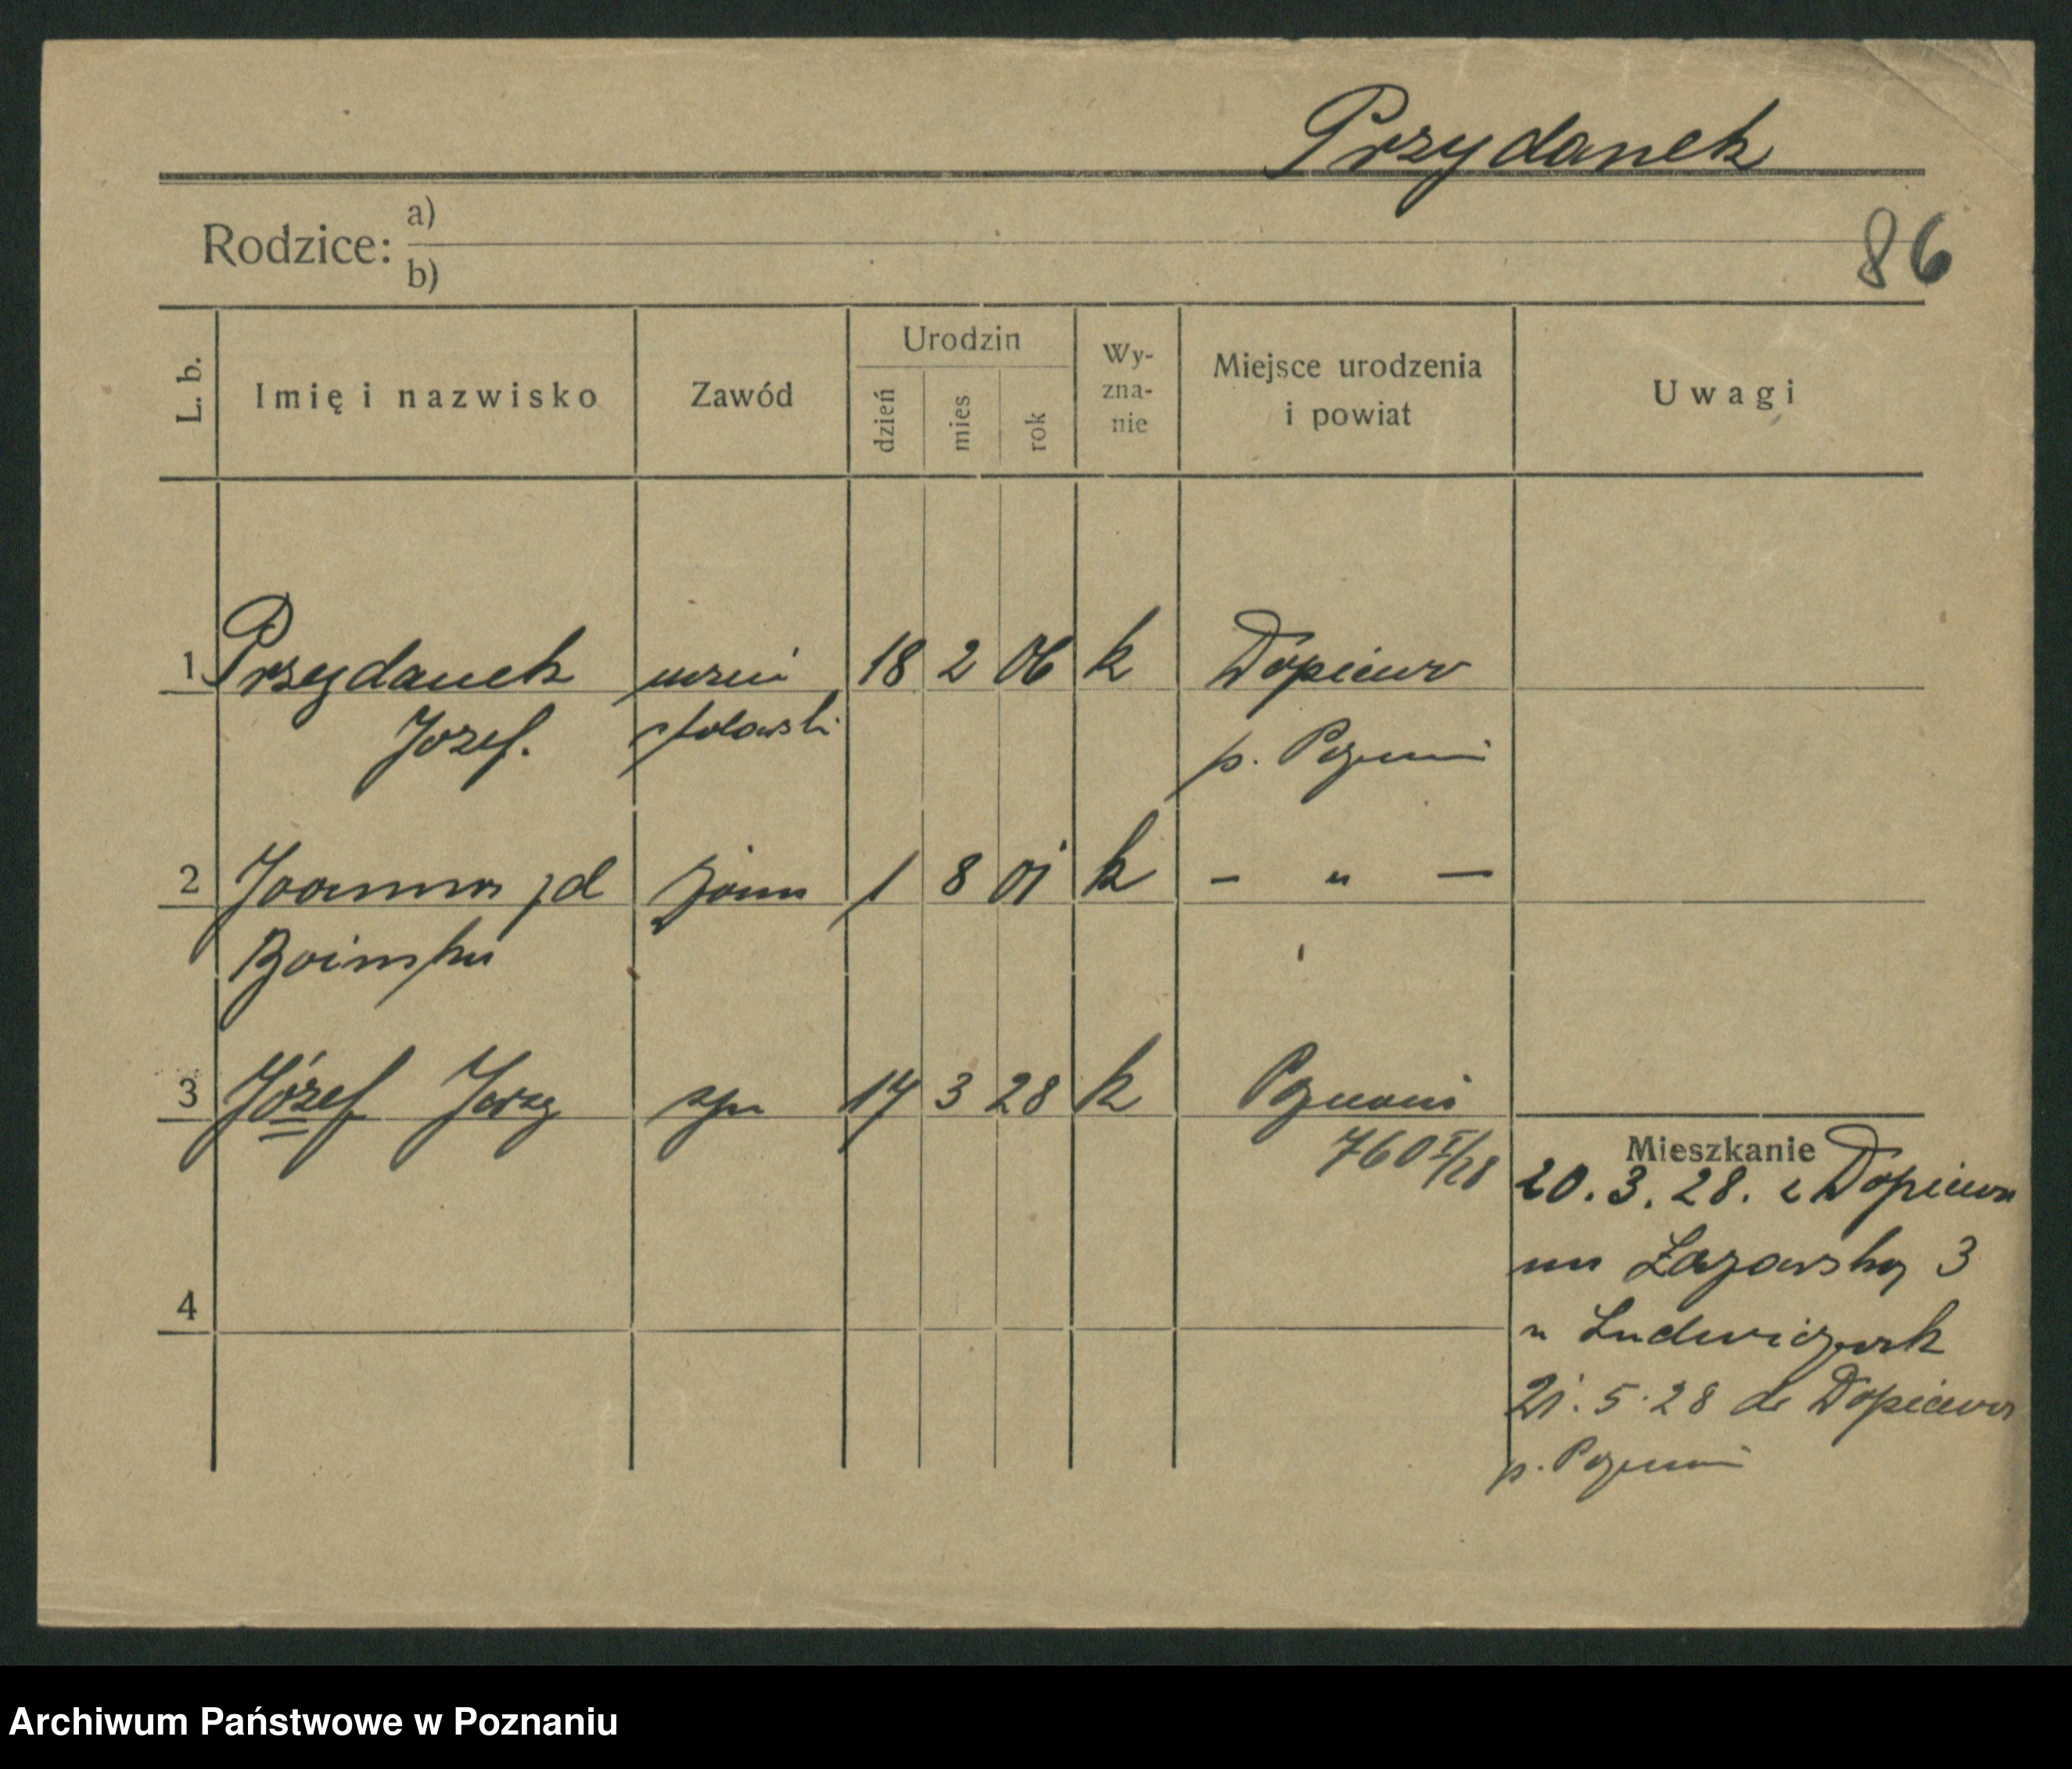 Przydanek
86
Rodzice: a)
b)
L. b.
Imię i nazwisko
Zawód
Urodzin
dzień
mies
rok
Wy-
zna-
nie
Miejsce urodzenia
i powiat
Uwagi
1 Przydanek uczeń 18 2 06 k Dopiewo
Józef. stolarski p. Poznań
2 Joanna żona 1 8 01 k — " —
3 Józef Jerzy syn 17 3 28 k Poznań
760 I/28
4
Mieszkanie
20.3.28. z Dopiewa
na 3
u Ludwiczak
21.5.28 do Dopiewa
p. Poznań
Archiwum Państwowe w Poznaniu